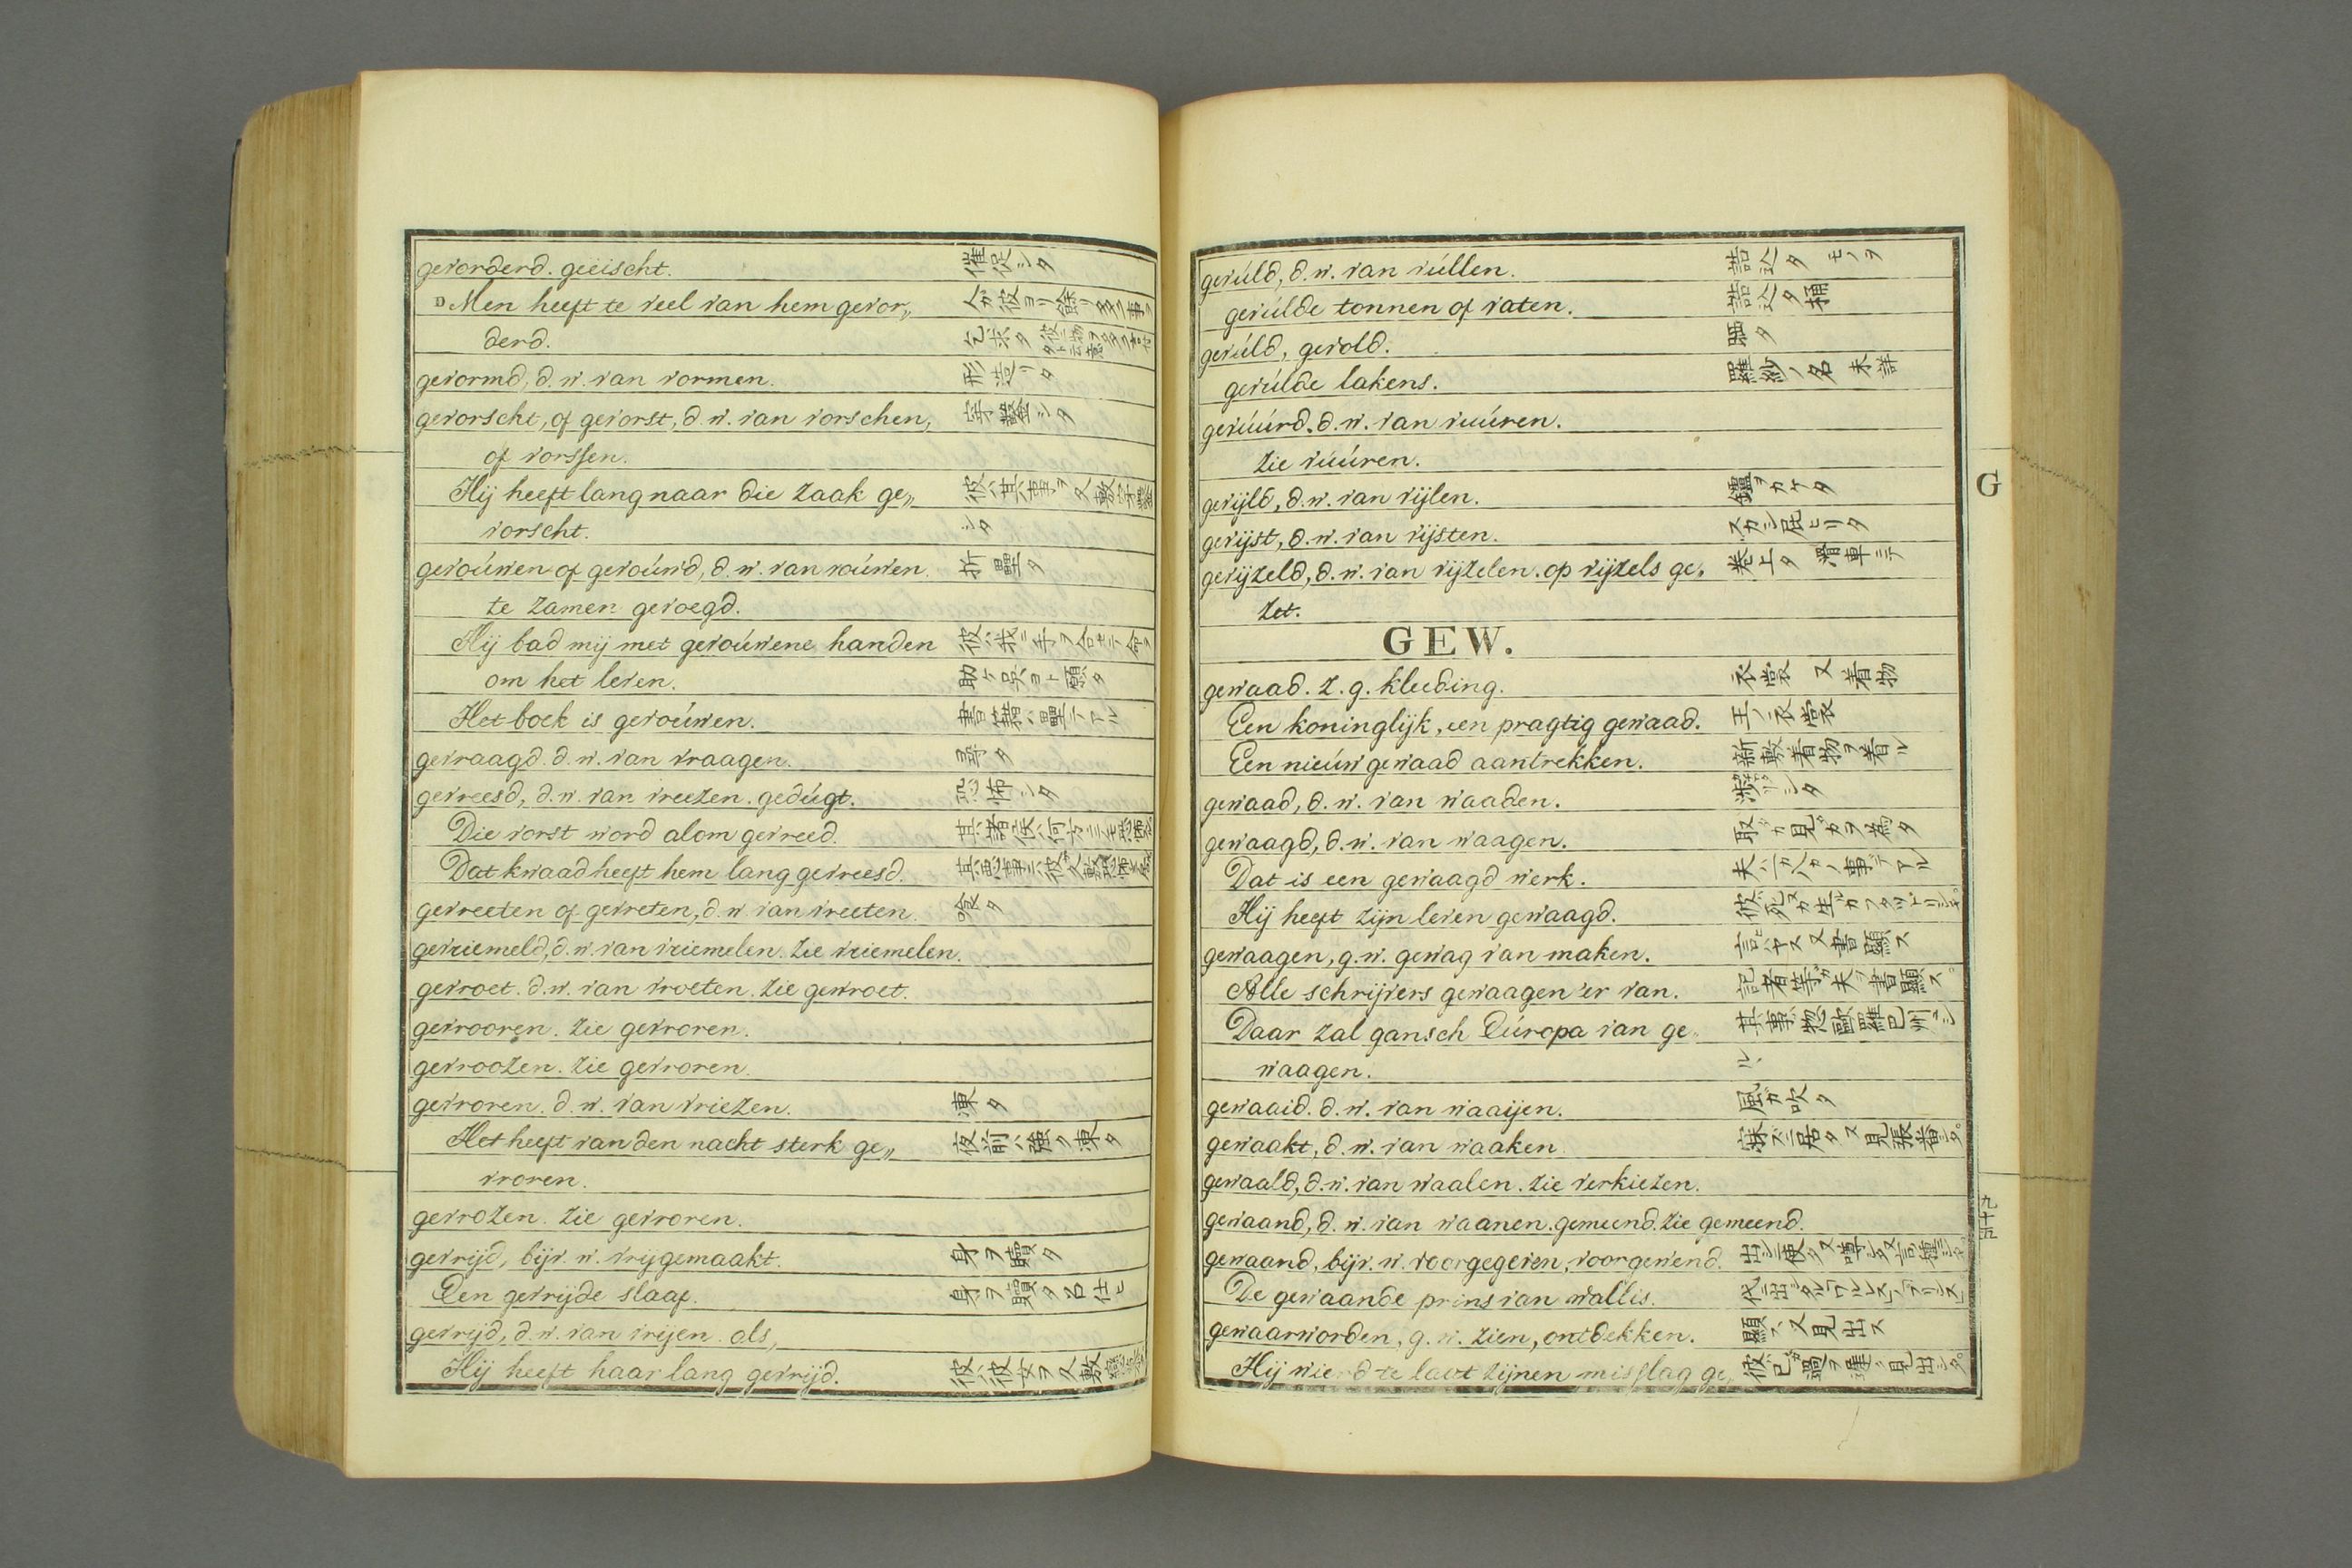 gevorderd. geëischt. 催促シタ
Men heeft te veel van hem gevor„
derd. 乞求タ
gevormd, d. w. van vormen. 形造リタ
gevorscht, of gevorst, d. w. van vorschen, 穿鑿シタ
of vorssen.
Hij heeft lang naar die zaak ge„ 彼ハ其事ヲ久敷穿鑿
vorscht. シタ
gevoúwen of gevoúwd, d. w. van voúwen. 折畳タ
te zamen gevoegd.
Hij bad mij met gevoúwene handen 彼ハ我ニ手ヲ合セテ命ヲ
om het leven. 助ケ呉ヨト願タ
Het boek is gevoúwen. 書籍ハ畳テアル
gevraagd. d. w. van vraagen. 尋タ
gevreesd, d. w. van vreezen. gedúgt. 恐怖シタ
Die vorst word alom gevreed.
Dat kwaad heeft hem lang gevreesd.
gevreeten of gevreten, d. w. van vreeten. 喰タ
gevriemeld, d. w. van vriemelen. zie vriemelen.
gevroet. d. w. van vroeten. zie gewroet.
gevrooren. zie gevroren.
gevroozen. zie gevroren.
gevroren. d. w. van vriezen. 凍タ
Het heeft van den nacht sterk ge„ 夜前ハ強ク凍タ
vroren.
gevrozen. zie gevroren.
gevrijd, bijv. w. vrijgemaakt. 身ヲ贖タ
Een gevrijde slaaf. 身ヲ贖タ召仕ヒ
gevrijd, d. w. van vrijen. als,
Hij heeft haar lang gevrijd. 彼ハ彼女ヲ久敷
gevúld, d. w. van vúllen. 詰込タ モノヲ
gevúlde tonnen of vaten. 詰込タ桶
gevúld, gevold.
gevúlde lakens. 羅紗ノ名 未詳
gevúúrd. d. w. van vuúren.
zie vúúren.
gevijld, d. w. van vijlen. 鑪ヲカケタ
gevijst, d. w. van vijsten. スカシ屁ヒリタ
gevijzeld, d. w. van vijzelen. op vijzels ge„ 巻上タ 滑車ニテ
zet.
GEW.
gewaad. z. g. kleeding. 衣裳 又 着物
Een koninglijk, een pragtig gewaad. 王ノ衣裳
Een nieúw gewaad aantrekken. 新敷着物ヲ着ル
gewaad, d. w. van waaden.
gewaagd, d. w. van waagen.
Dat is een gewaagd werk.
Hij heeft zijn leven gewaagd.
gewaagen, g. w. gewag van maken.
Alle schrijvers gewaagen 'er van. 記者等ガ夫ヲ書顕ス。
Daar zal gansch Európa van ge„
waagen.
gewaaid. d. w. van waaijen. 風ガ吹タ
gewaakt, d. w. van waaken. 寐ズニ居タ又見張番シタ。
gewaald, d. w. van waalen. zie verkiezen.
gewaand, d. w. van waanen. gemeend. zie gemeend.
gewaand, bijv. w. voorgegeven, voorgewend.
De gewaande prins van wallis.
gewaarworden, g. w. zien, ontdekken. 顕ス又見出ス
Hij wierd te laat zijnen misslag ge„
G
九十五